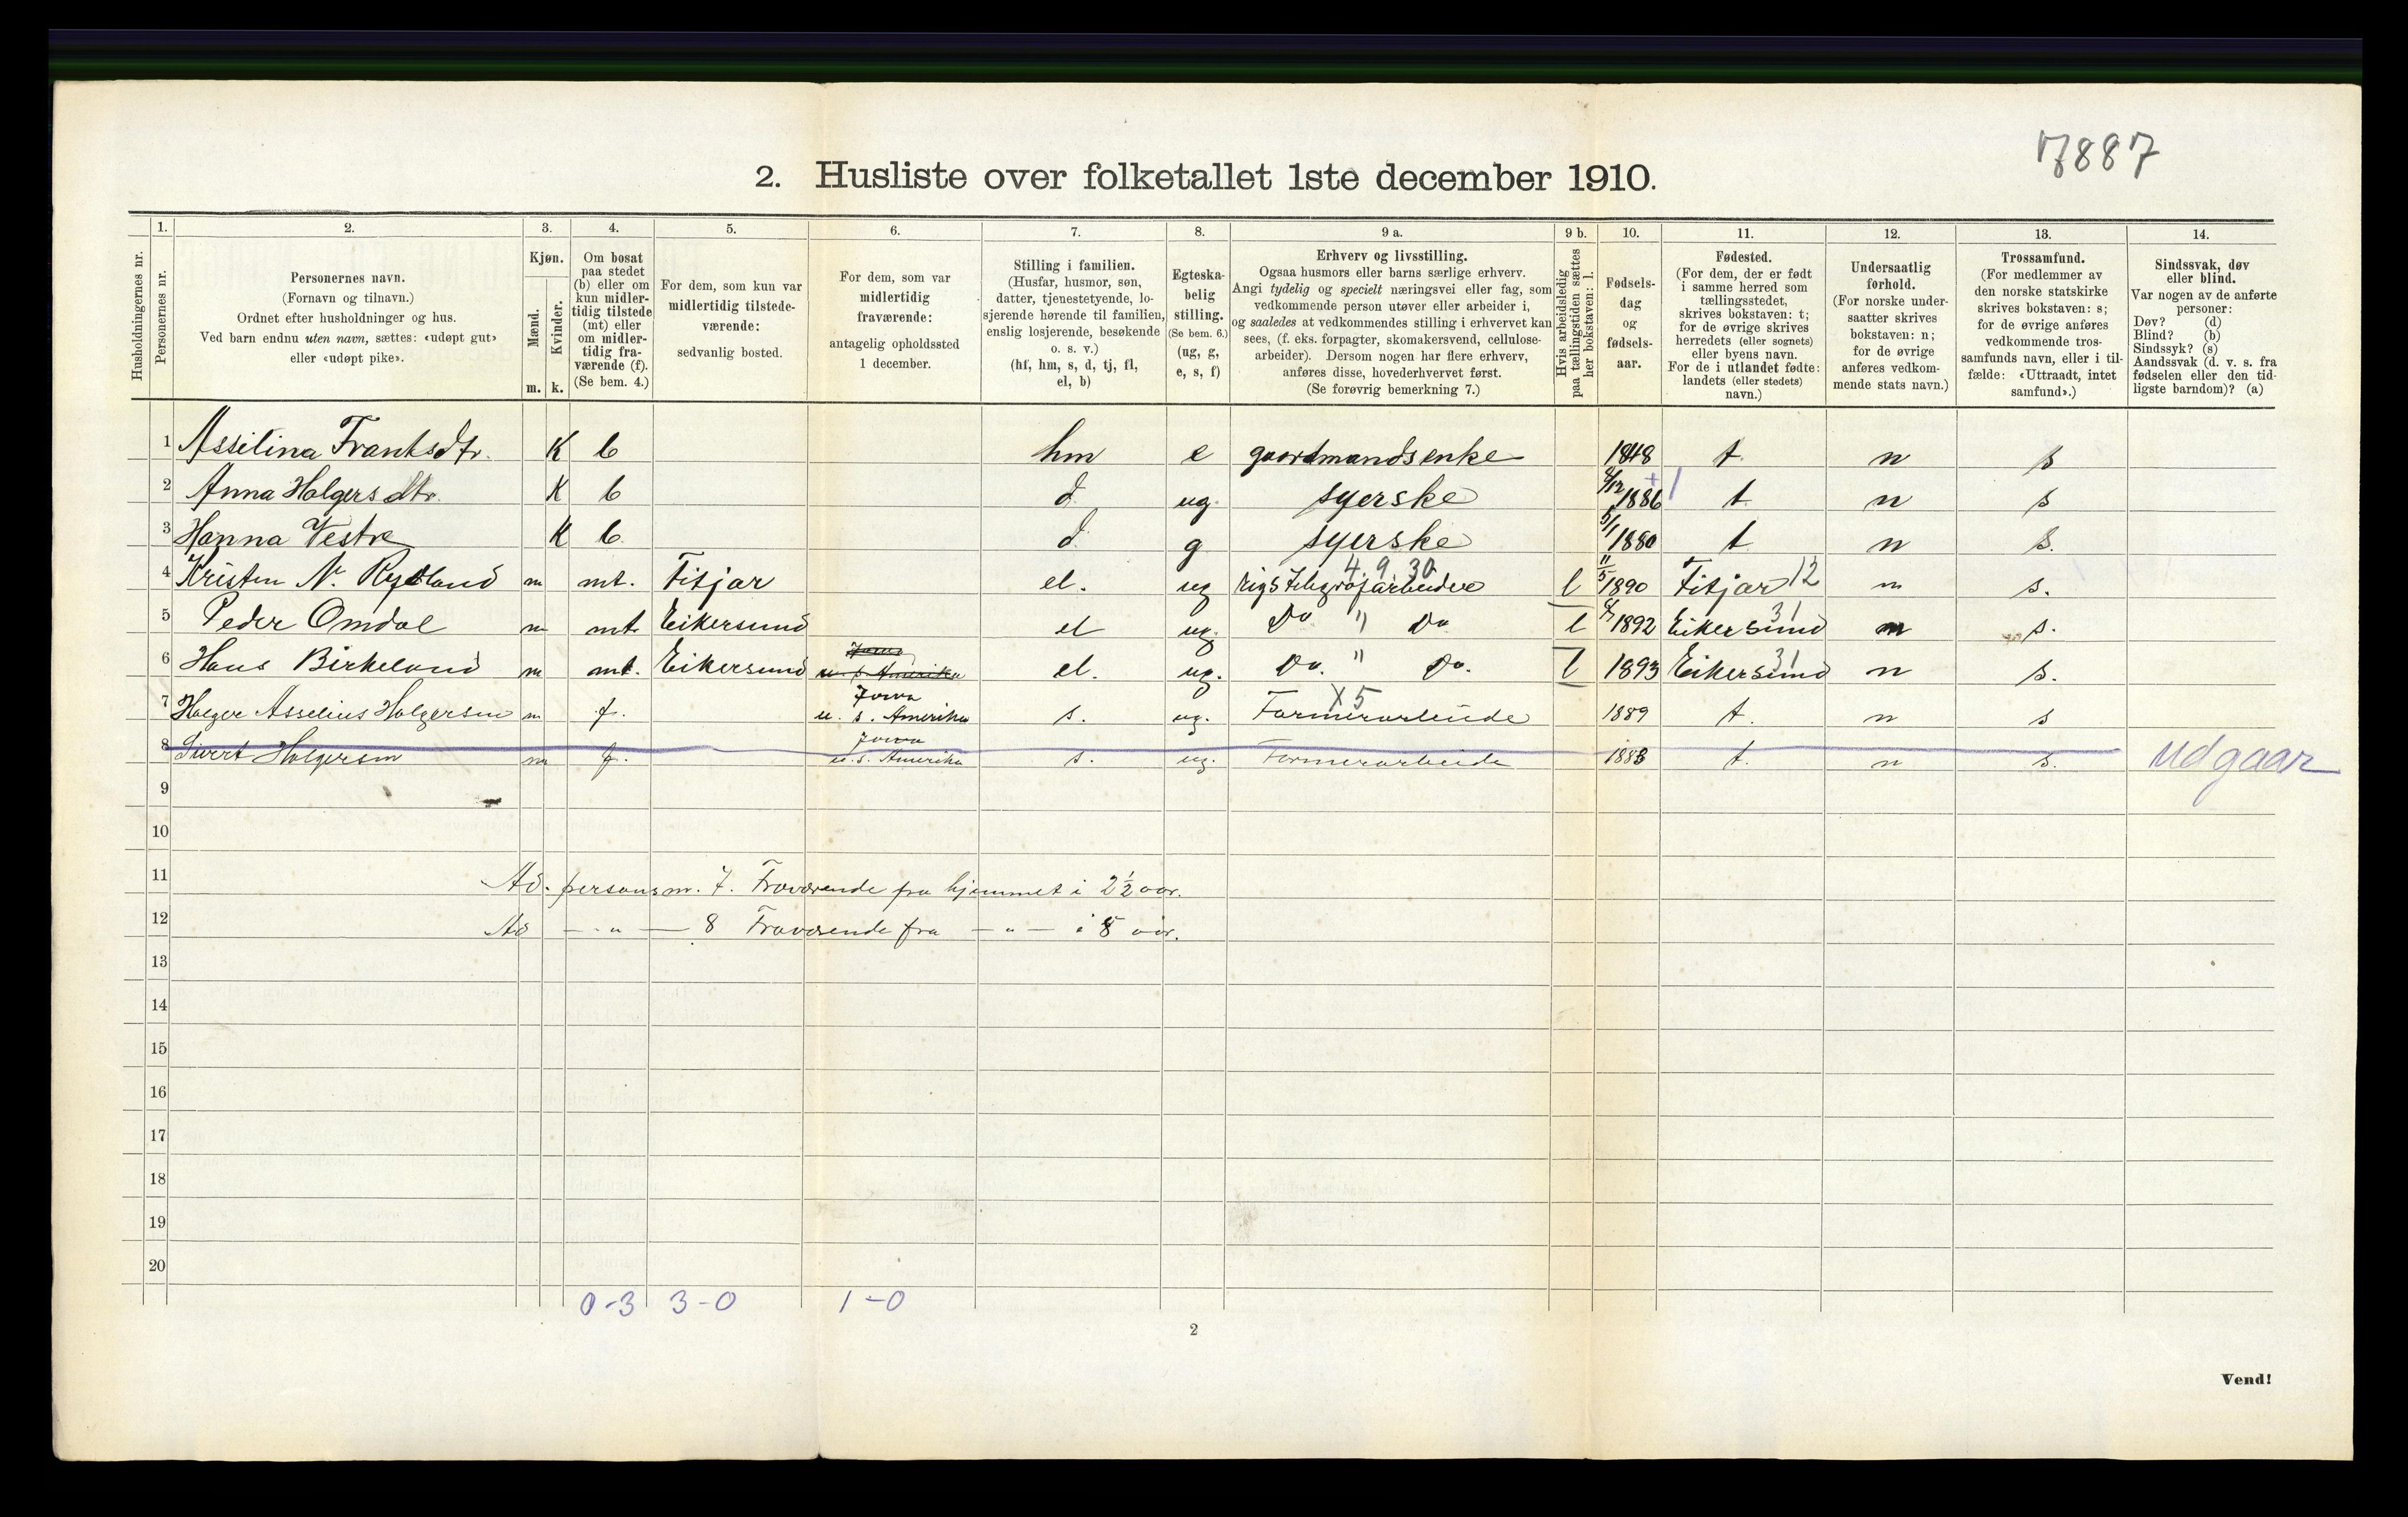 7887
2. Husliste over folketallet 1ste december 1910.
Husholdningernes nr.
1.
Personernes nr.
2.
Personernes navn.
(Fornavn og tilnavn.)
Ordnet efter husholdninger og hus.
Ved barn endnu uten navn, sættes: «udøpt gut»
eller «udøpt pike».
3.
Kjøn.
Mænd.
Kvinder.
m. k.
4.
Om bosat
paa stedet
(b) eller om
kun midler-
tidig tilstede
(mt) eller
om midler-
tidig fra-
værende (f).
(Se bem. 4.)
5.
For dem, som kun var
midlertidig tilstede-
værende:
sedvanlig bosted.
6.
For dem, som var
midlertidig
fraværende:
antagelig opholdssted
1 december.
7.
Stilling i familien.
(Husfar, husmor, søn,
datter, tjenestetyende, lo-
sjerende hørende til familien,
enslig losjerende, besøkende
o. s. v.)
(hf, hm, s, d, tj, fl,
el, b)
8.
Egteska-
belig
stilling.
(Se bem. 6.)
(ug, g,
e, s, f)
9 a.
Erhverv og livsstilling.
Ogsaa husmors eller barns særlige erhverv.
Angi tydelig og specielt næringsvei eller fag, som
vedkommende person utøver eller arbeider i,
og saaledes at vedkommendes stilling i erhvervet kan
sees, (f. eks. forpagter, skomakersvend, cellulose-
arbeider). Dersom nogen har flere erhverv,
anføres disse, hovederhvervet først.
(Se forøvrig bemerkning 7.)
9 b.
Hvis arbeidsledig
paa tællingstiden sættes
her bokstaven: l.
10.
Fødsels-
dag
og
fødsels-
aar.
11.
Fødested.
(For dem, der er født
i samme herred som
tællingsstedet,
skrives bokstaven: t;
for de øvrige skrives
herredets (eller sognets)
eller byens navn.
For de i utlandet fødte:
landets (eller stedets)
navn.)
12.
Undersaatlig
forhold.
(For norske under-
saatter skrives
bokstaven: n;
for de øvrige
anføres vedkom-
mende stats navn.)
13.
Trossamfund.
(For medlemmer av
den norske statskirke
skrives bokstaven: s;
for de øvrige anføres
vedkommende tros-
samfunds navn, eller i til-
fælde: «Uttraadt, intet
samfund».)
14.
Sindssvak, døv
eller blind.
Var nogen av de anførte
personer:
Døv? (d)
Blind? (b)
Sindssyk? (s)
Aandssvak (d. v. s. fra
fødselen eller den tid-
ligste barndom)? (a)
1 Asselina Frantsdtr. K b hm e gaardmandsenke 1848 t. n s
2 Anna Holgersdtr. K b d. ug. syerske 8/12 1886 t n s
3 Hanna Vestre K b d g syerske 5/1 1880 t n s.
4 9 30
4 Kristen N. Rydland m mt. Fitjar el. ug rigstelegrafarbeider l 11/5 1890 Fitjar 12 n s.
5 Peder Omdal m mt Eikersund el ug. Do " Do l 1892 Eikersund 31 n s.
6 Hans Birkeland m mt. Eikersund u. s. Amerika el. ug. Do. " Do. l 1893 Eikersund 31 n s.
Jowa X5
7 Holger Asselius Holgersen m f. u. s. Amerika s. ug. Farmerarbeide 1889 t. n s
Jowa
8 Sivert Holgersen m f. u. s. Amerika s. ug. Farmerarbeide 1883 t. n s. udgaar
9
10
11 Ad. persons nr. 7. Fraværende fra hjemmet i 2½ aar.
12 Ad — " — 8 Fraværende fra — " — i 8 aar.
13
14
15
16
17
18
19
20
0-3 3-0 1-0
2
Vend!